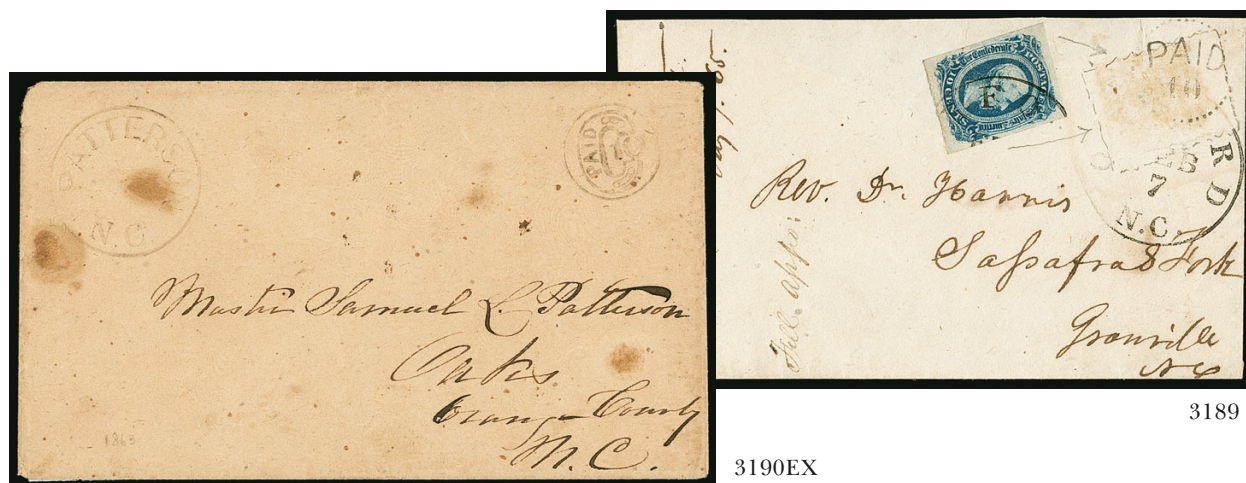 PATTERSON
N.C.
PAID 10
Master Samuel L. Patterson
Oaks
Orange County
N.C.
1863
3190EX
PAID
10
RD
7
N.C.
Rev. Dr. Harris
Sassafras Fork
Granville
NC
3189